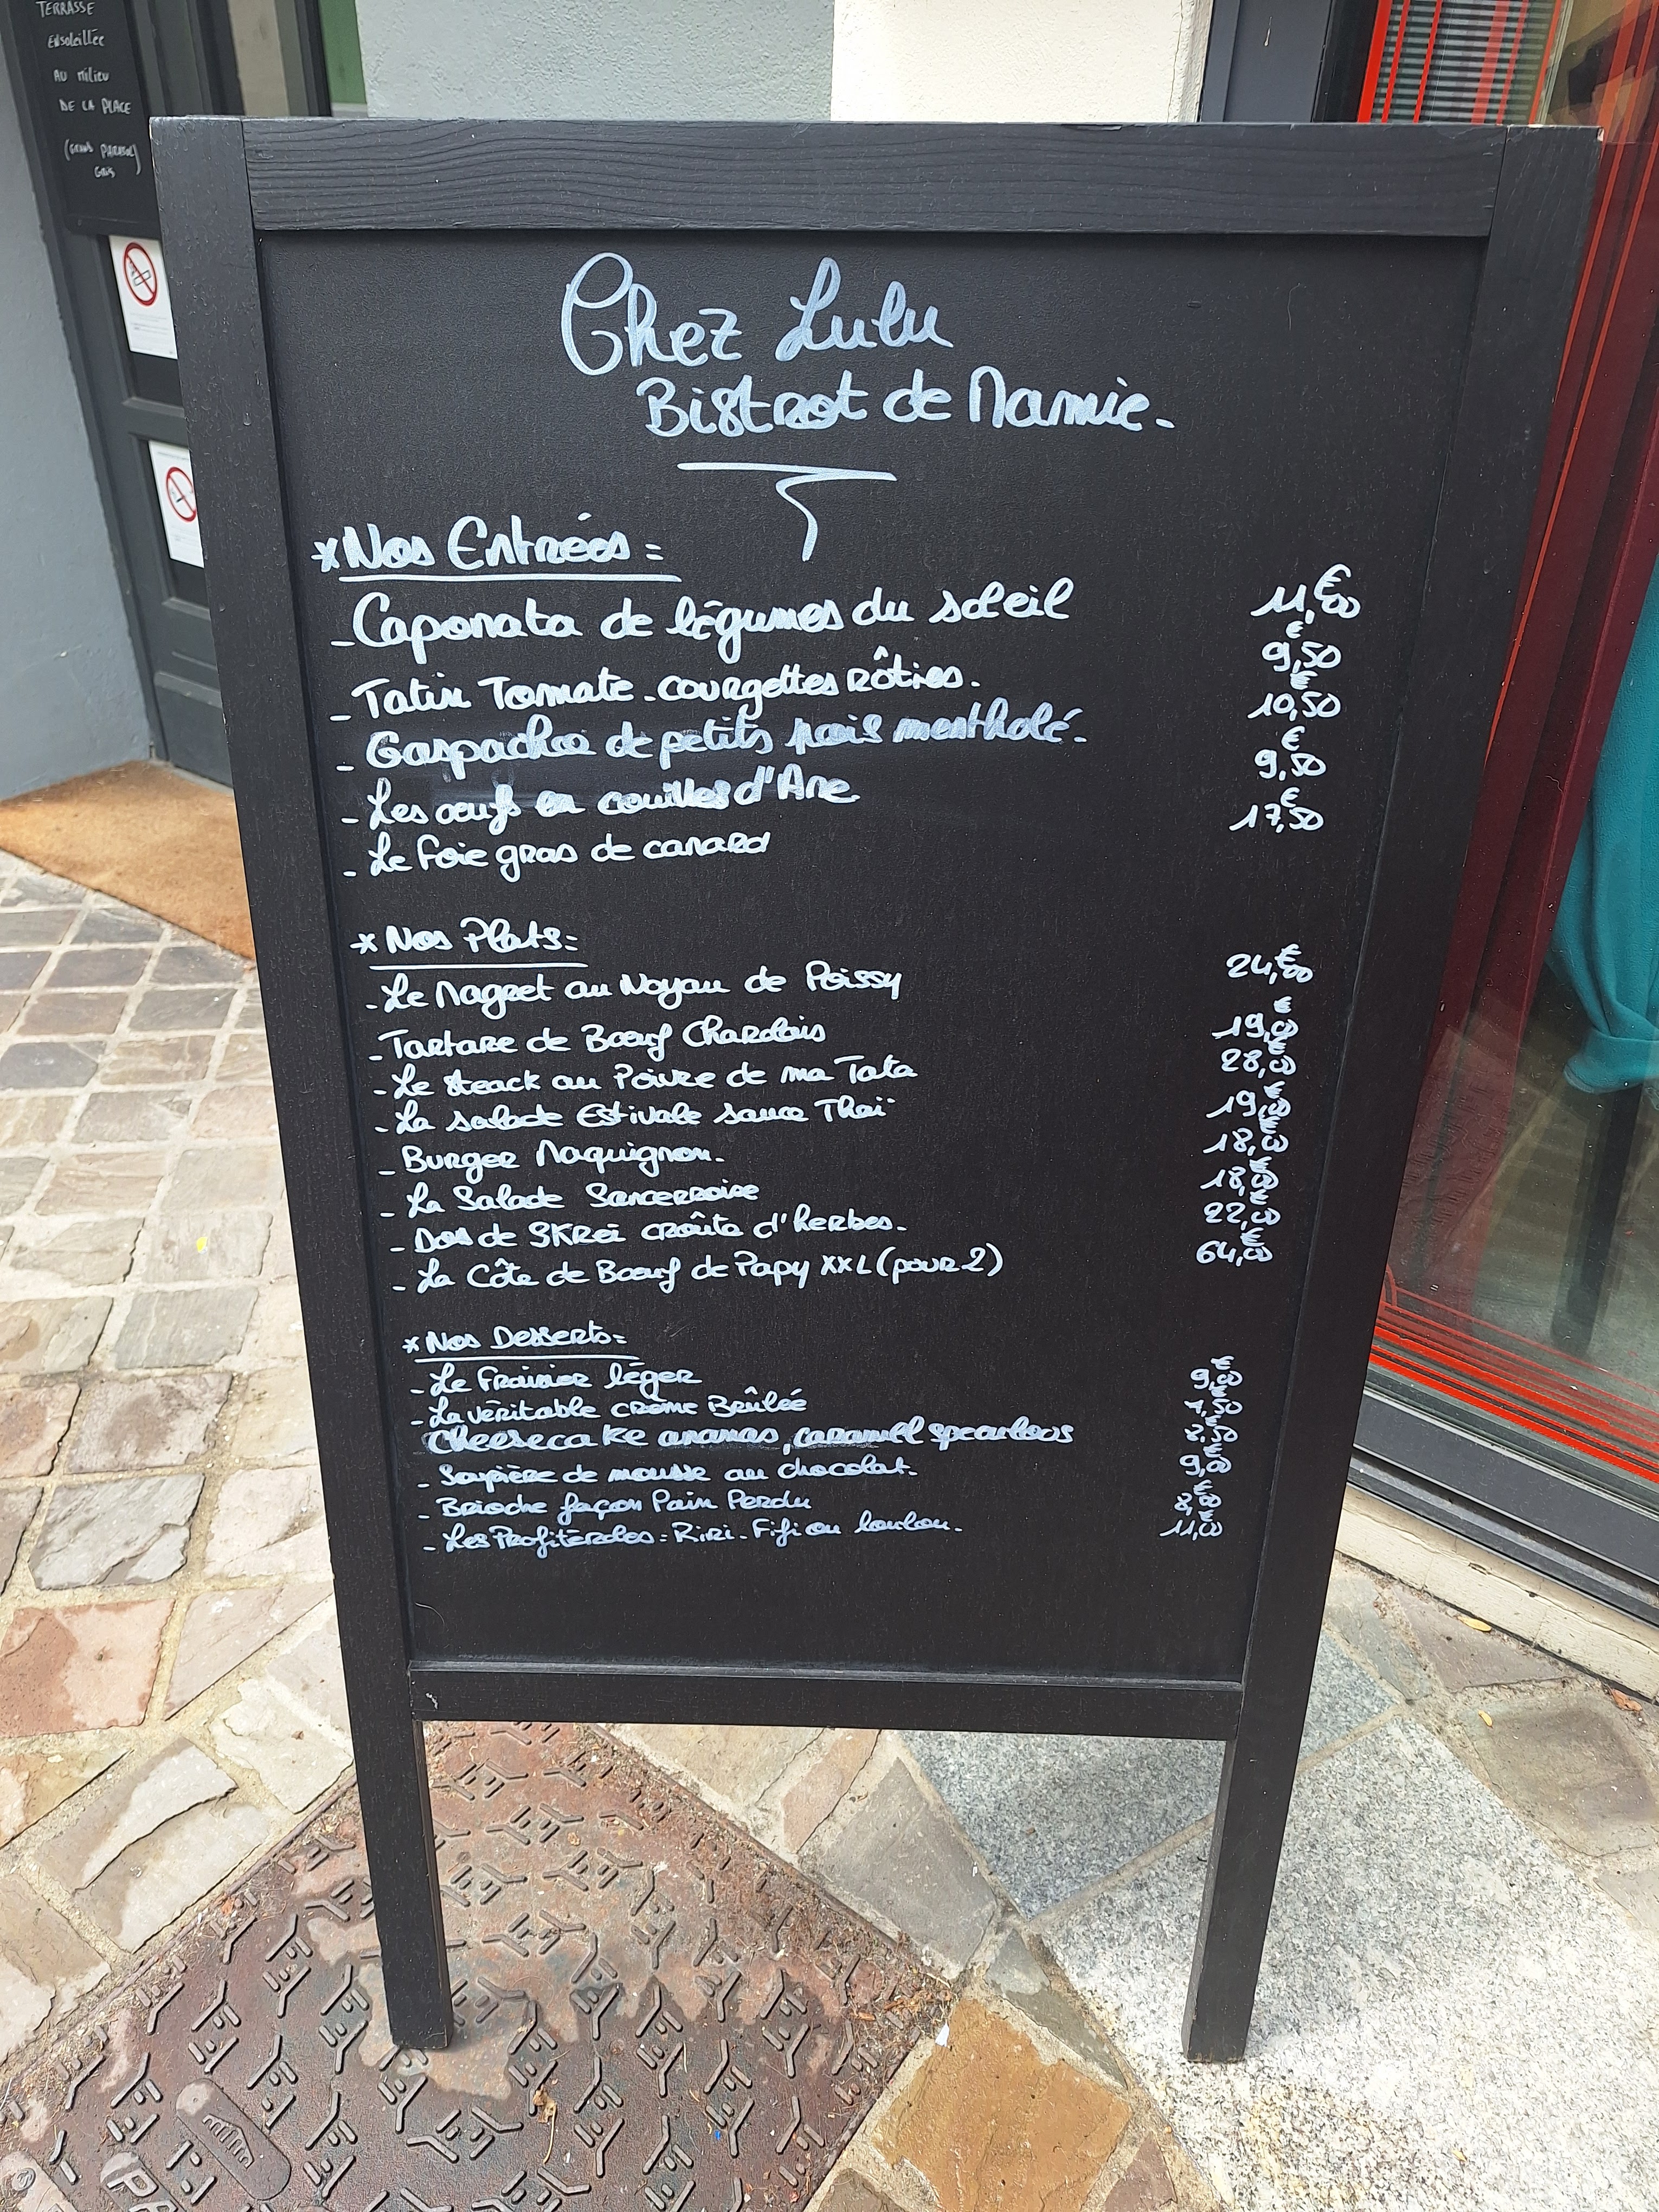 TERRASSE
ensoleillée
AU milieu
DE LA PLACE
(GRAND PARASOL)
GRIS
Chez Lulu
Bistrot de Mamie.
*Nos Entrées:
- Caponata de légumes du soleil 11,€00
- Tatin Tomate - courgettes rôties. 9,€50
- Gaspacho de petits pois mentholé. 10,€50
- Les œufs en couilles d'Ane 9,€50
- Le Foie gras de canard 17,€50
* Nos Plats:
- Le Magret au Noyau de Poissy 24,€00
- Tartare de Bœuf Charolais 19,€00
- Le steack au Poivre de ma Tata 28,€00
- La salade Estivale sauce Thaï 19,€00
- Burger Maquignon. 18,€00
- La Salade Sancerroise 18,€00
- Dos de SKrei croûte d'herbes. 22,€00
- La Côte de Bœuf de Papy XXL (pour 2) 64,€00
* Nos Desserts:
- Le Fraisier léger 9,€00
- La véritable crème Brûlée ,€50
Cheesecake ananas, caramel speculoos 8,€50
- Soupière de mousse au chocolat. 9,€00
- Brioche façon Pain Perdu 8,€00
- Les Profiteroles: Riri - Fifi ou loulou. 11,€00